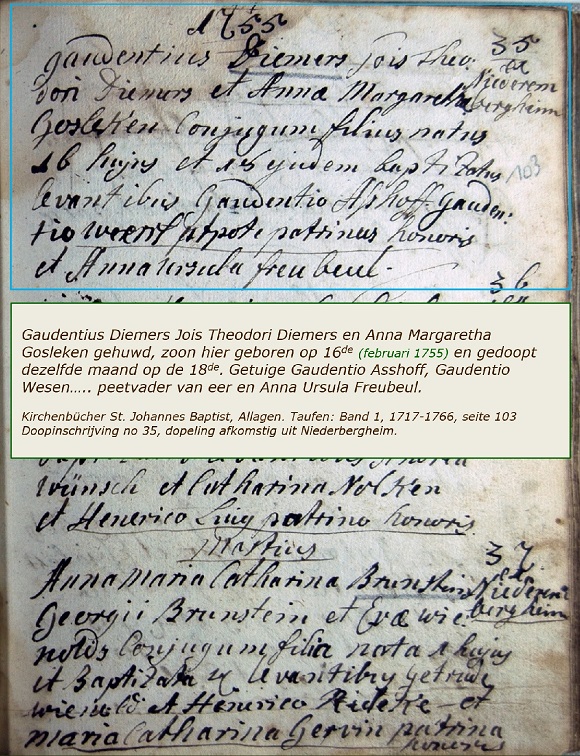 1755
gaudentius Diemers Jois Theo: 35
dori Diemers et Anna Margaretha ex Niederem
Gosleken Conjugum filius natus bergheim
16 hujus et 18 ejusdem baptizatus 103
levantibus Gaudentio Asshoff gauden:
tio utpote patrinus honoris
et Anna Ursula freubeul.
36
Gaudentius Diemers Jois Theodori Diemers en Anna Margaretha
Gosleken gehuwd, zoon hier geboren op 16de (februari 1755) en gedoopt
dezelfde maand op de 18de. Getuige Gaudentio Asshoff, Gaudentio
Wesen..... peetvader van eer en Anna Ursula Freubeul.
Kirchenbücher St. Johannes Baptist, Allagen. Taufen: Band 1, 1717-1766, seite 103
Doopinschrijving no 35, dopeling afkomstig uit Niederbergheim.
wünsch et Catharina Nolken
et Henerico Luig patrino honoris
Martius 37
Anna Maria Catharina Brunstein ex Niederem
Georgii Brunstein et Evæ wie: bergheim
nolds Conjugum filia nata 1 hujus
et Baptizata levantibus getrude
wienold et Henerico Rideke et
maria Catharina Gervin patrina
honoris